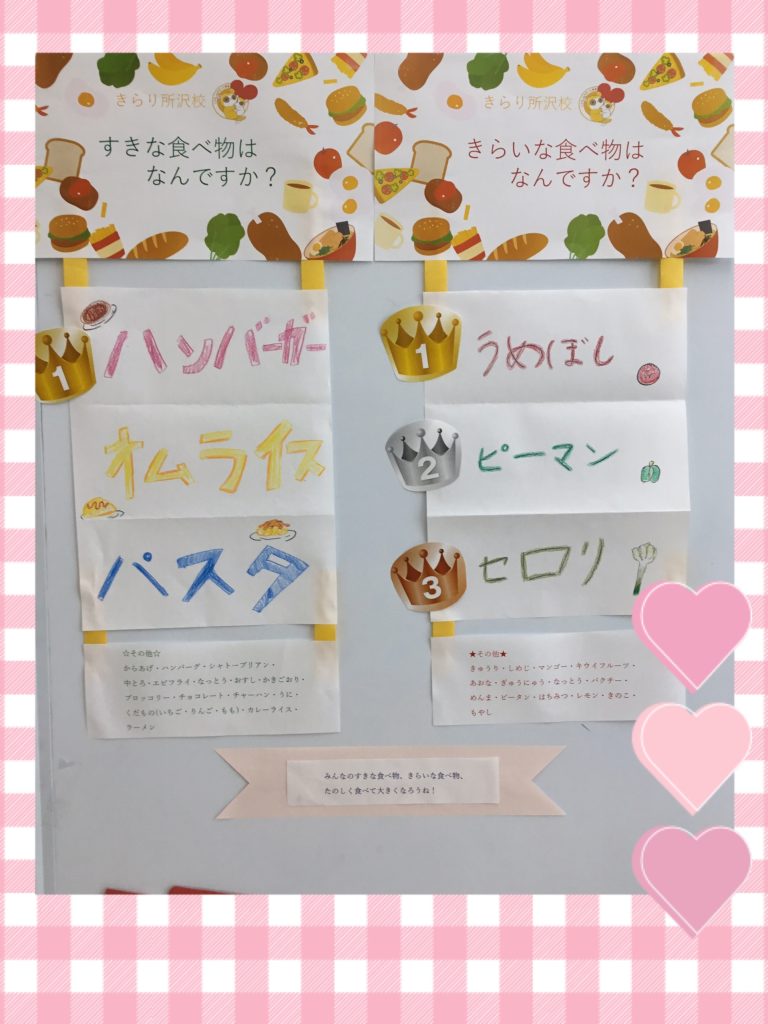 きらり所沢校
すきな食べ物は
なんですか?
1
ハンバーガー
オムライス
パスタ
☆その他☆
からあげ・ハンバーグ・シャトーブリアン・
中とろ・エビフライ・なっとう・おすし・かきごおり・
ブロッコリー・チョコレート・チャーハン・うに・
くだもの(いちご・りんご・もも)・カレーライス・
ラーメン
きらり所沢校
きらいな食べ物は
なんですか?
1
うめぼし
2
ピーマン
3
セロリ
★その他★
きゅうり・しめじ・マンゴー・キウイフルーツ・
あおな・ぎゅうにゅう・なっとう・パクチー・
めんま・ピータン・はちみつ・レモン・きのこ・
もやし
みんなのすきな食べ物、きらいな食べ物、
たのしく食べて大きくなろうね!